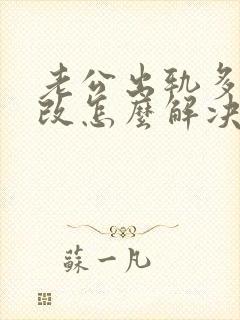 老公出轨多
改怎麽解决
蘇一凡